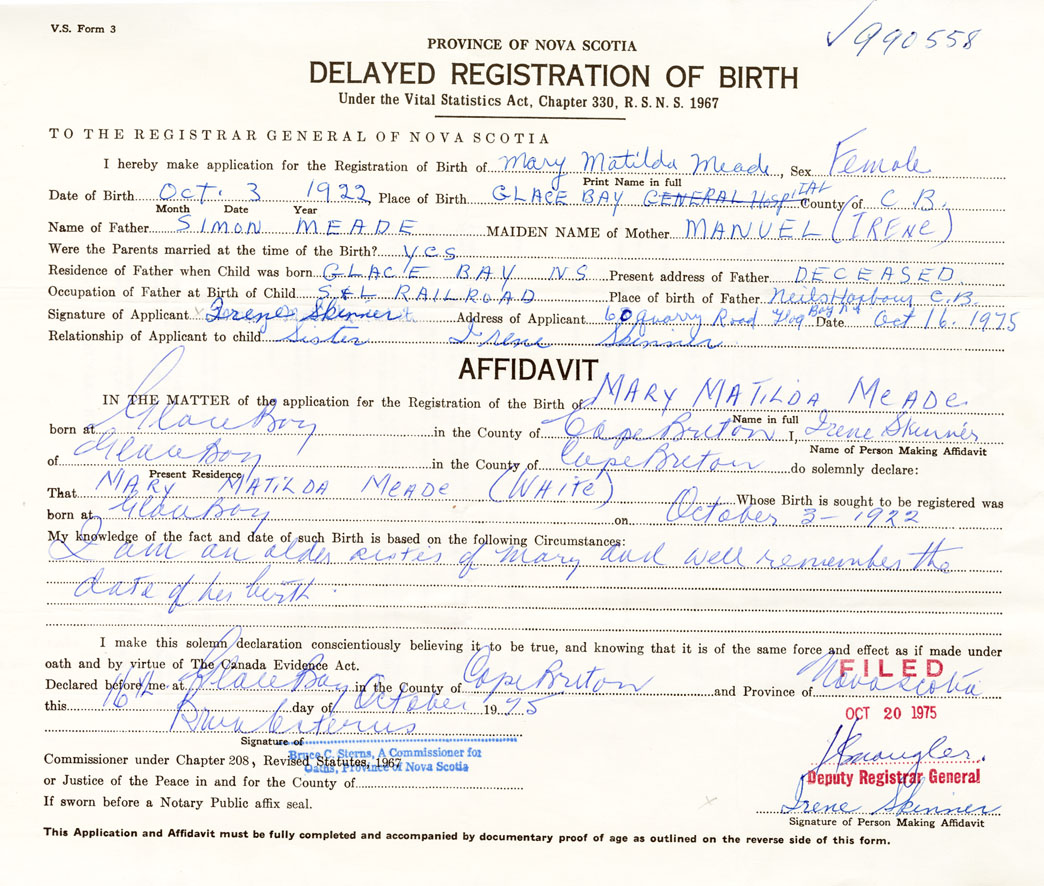 V.S. Form 3
990558
PROVINCE OF NOVA SCOTIA
DELAYED REGISTRATION OF BIRTH
Under the Vital Statistics Act, Chapter 330, R. S. N. S. 1967
TO THE REGISTRAR GENERAL OF NOVA SCOTIA
I hereby make application for the Registration of Birth of Mary Matilda Meade, Sex Female
Print Name in full
Date of Birth OCT. 3 1922, Place of Birth GLACE BAY GENERAL HOSPITAL County of C B.
Month Date Year
Name of Father SIMON MEADE MAIDEN NAME of Mother MANUEL (IRENE)
Were the Parents married at the time of the Birth? YES
Residence of Father when Child was born GLACE BAY NS Present address of Father DECEASED
Occupation of Father at Birth of Child S&L RAILROAD Place of birth of Father Neils Harbour C.B.
Signature of Applicant Irene Skinner Address of Applicant 60 Quarry Road Bay Date Oct 16. 1975
Relationship of Applicant to child Sister Irene Skinner
AFFIDAVIT
IN THE MATTER of the application for the Registration of the Birth of MARY MATILDA MEADE
Name in full
born at Glace Bay in the County of Cape Breton I, Irene Skinner
Name of Person Making Affidavit
of Glace Bay in the County of Cape Breton do solemnly declare:
Present Residence
That MARY MATILDA MEADE (WHITE) Whose Birth is sought to be registered was
born at Glace Bay on October 3 - 1922
My knowledge of the fact and date of such Birth is based on the following Circumstances:
I am an older sister of Mary and well remember the
date of her birth.
I make this solemn declaration conscientiously believing it to be true, and knowing that it is of the same force and effect as if made under
oath and by virtue of The Canada Evidence Act.
FILED
Declared before me at Glace Bay in the County of Cape Breton and Province of Nova Scotia
this 16th day of October 1975
OCT 20 1975
Signature of
Bruce C. Sterns, A Commissioner for
Oaths, Province of Nova Scotia
Commissioner under Chapter 208, Revised Statutes, 1967
Deputy Registrar General
or Justice of the Peace in and for the County of
If sworn before a Notary Public affix seal.
Irene Skinner
Signature of Person Making Affidavit
This Application and Affidavit must be fully completed and accompanied by documentary proof of age as outlined on the reverse side of this form.